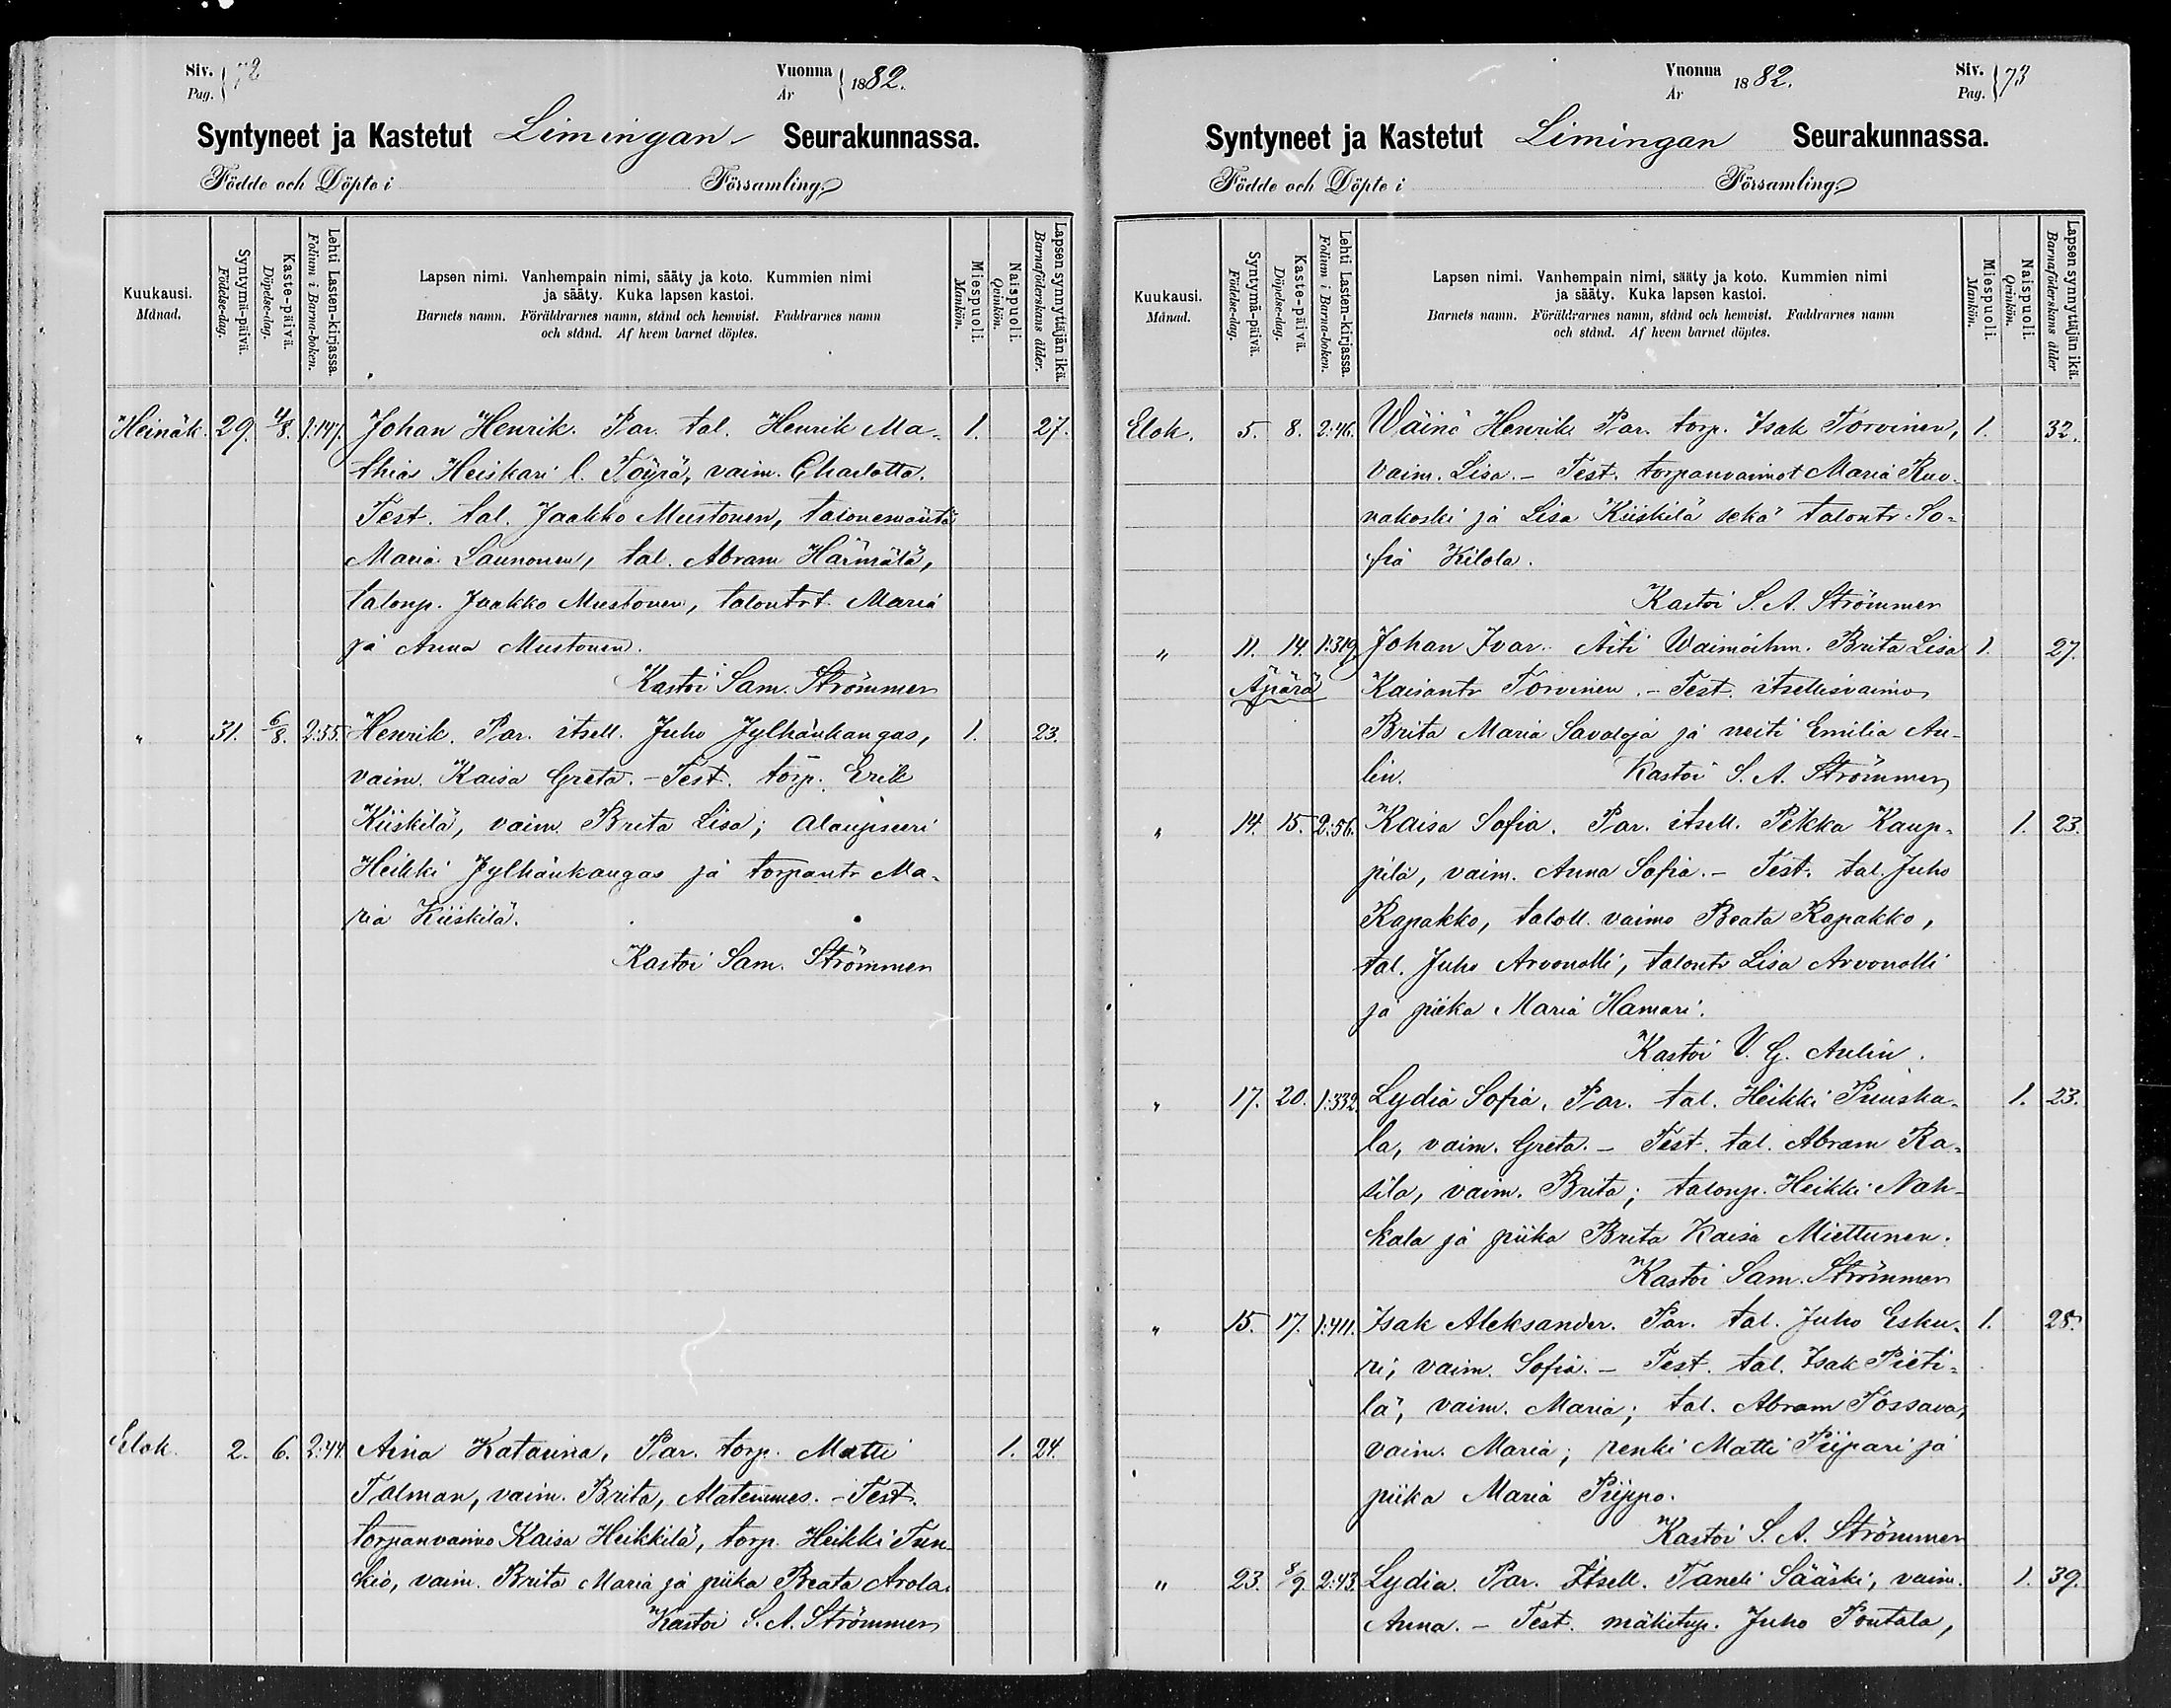 Siv. Pag. 72 Vuonna År 1882.
Syntyneet ja Kastetut Limingan Seurakunnassa.
Födde och Döpte i Församling.
Kuukausi. Månad.
Syntymä-päivä. Födelse-dag.
Kaste-päivä. Döpelse-dag.
Lehti Lasten-kirjassa. Folium i Barna-boken.
Lapsen nimi. Vanhempain nimi, sääty ja koto. Kummien nimi
ja sääty. Kuka lapsen kastoi.
Barnets namn. Föräldrarnes namn, stånd och hemvist. Faddrarnes namn
och stånd. Af hvem barnet döptes.
Miespuoli. Mankön.
Naispuoli. Qvinkön.
Lapsen synnyttäjän ikä. Barnaföderskans ålder.
Heinäk. 29. 4/8. 1:147. Johan Henrik. Par. tal. Henrik Ma- 1. 27.
thias Heiskari l. Töyrä, vaim. Charlotta.
Test. tal. Jaakko Mustonen, talonemäntä
Maria Launonen, tal. Abram Härmälä,
talonp. Jaakko Mustonen, talontrt. Maria
ja Anna Mustonen.
Kastoi Sam. Strömmer
" 31. 6/8. 2:55. Henrik. Par. itsell. Juho Jylhänkangas, 1. 23.
vaim. Kaisa Greta. - Test. torp. Erik
Kiiskilä, vaim. Brita Lisa; alaupseeri
Heikki Jylhänkangas ja torpantr Ma-
ria Kiiskilä.
Kastoi Sam. Strömmer
Elok. 2. 6. 2:44. Aina Katarina, Par. torp. Matti 1. 24.
Tolman, vaim. Brita, Alatemmes. - Test.
torpanvaimo Kaisa Heikkilä, torp. Heikki Tun-
kio, vaim. Brita Maria ja piika Beata Arola.
Kastoi S. A. Strömmer
Vuonna År 1882. Siv. Pag. 73
Syntyneet ja Kastetut Limingan Seurakunnassa.
Födde och Döpte i Församling.
Kuukausi. Månad.
Syntymä-päivä. Födelse-dag.
Kaste-päivä. Döpelse-dag.
Lehti Lasten-kirjassa. Folium i Barna-boken.
Lapsen nimi. Vanhempain nimi, sääty ja koto. Kummien nimi
ja sääty. Kuka lapsen kastoi.
Barnets namn. Föräldrarnes namn, stånd och hemvist. Faddrarnes namn
och stånd. Af hvem barnet döptes.
Miespuoli. Mankön.
Naispuoli. Qvinkön.
Lapsen synnyttäjän ikä. Barnaföderskans ålder
Elok. 5. 8. 2:46. Wäinö Henrik Par. torp. Isak Torvinen, 1. 32.
vaim. Lisa. - Test. torpanvaimot Maria Ruo-
nakoski ja Lisa Kiiskilä sekä talontr. So-
fia Kilola.
Kastoi S. A. Strömmer
" 11. 14. 1:319. Johan Ivar. Äiti Waimoihm. Brita Lisa 1. 27.
Äpärä Kaisantr Torvinen. - Test. itsellisvaimo
Brita Maria Savaloja ja neiti Emilia Au-
lin. Kastoi S. A. Strömmer
" 14. 15. 2:56. Kaisa Sofia. Par. itsell. Pekka Kaup- 1. 23.
pila, vaim. Anna Sofia. - Test. tal. Juho
Rapakko, taloll. vaimo Beata Rapakko,
tal. Juho Arvonolli, talontr Lisa Arvonolli
ja piika Maria Hamari.
Kastoi V. G. Aulin.
" 17. 20. 1:332. Lydia Sofia. Par. tal. Heikki Puuska- 1. 23.
la, vaim. Greta. - Test. tal. Abram Ra-
sila, vaim. Brita; talonp. Heikki Nah-
kala ja piika Brita Kaisa Miettunen.
Kastoi Sam. Strömmer
" 15. 17. 1:411. Isak Aleksander. Par. tal. Juho Esku- 1. 28.
ri, vaim. Sofia. - Test. tal. Isak Pieti-
lä, vaim. Maria; tal. Abram Tossava,
vaim. Maria; renki Matti Piipari ja
piika Maria Piippo.
Kastoi S. A. Strömmer
" 23. 8/9 2:43. Lydia. Par. Itsell. Taneli Sääski, vaim. 1. 39.
Anna. - Test. mäkitup. Juho Poutala,